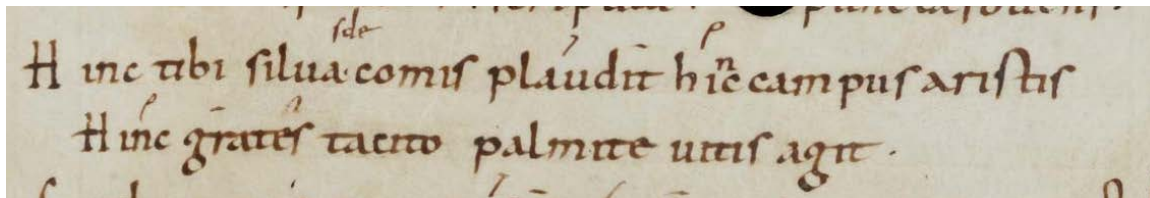 Hinc tibi silua comis plaudit hinc campus aristis
Hinc grates tacito palmite uitis agit .